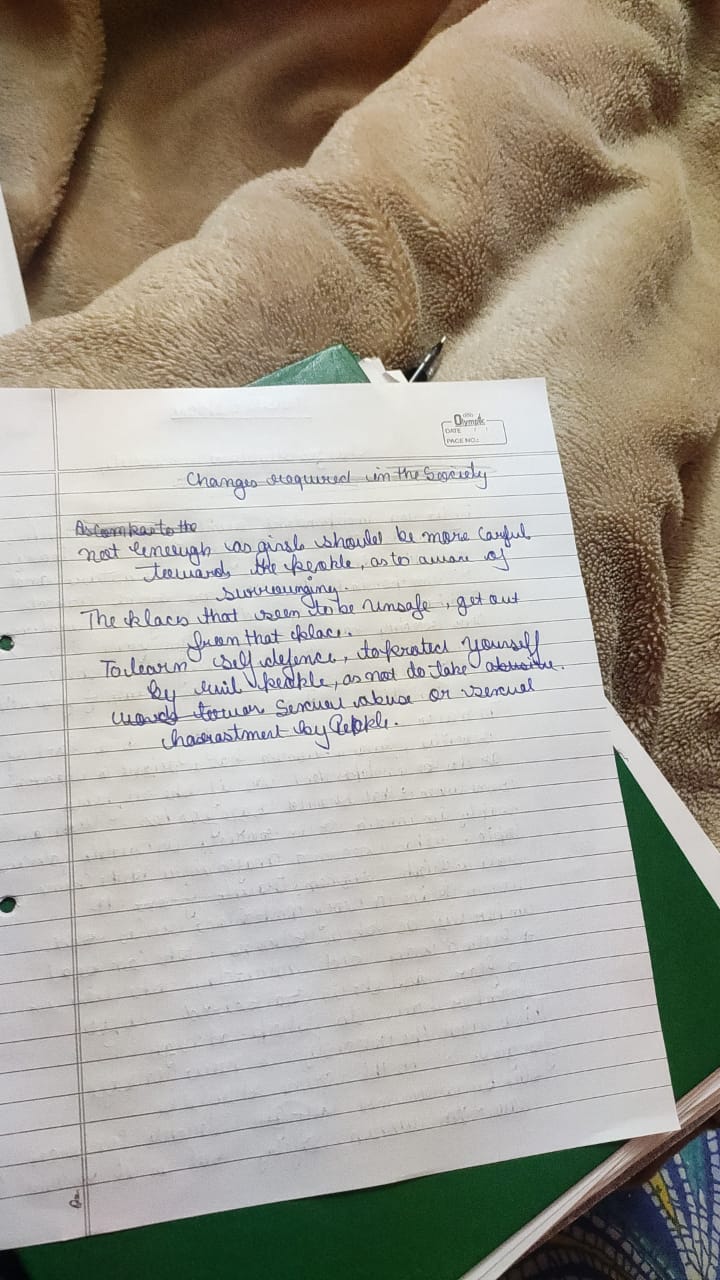 Olympic
DATE
PAGE NO.:
Changes required in the Society
As compare to the
not enough as girsls should be more carful
towards the people, as to aware of
surrounging.
The places that seen to be unsafe, get out
from that place.
To learn self defence, to protect yourself
by evil people, as not do take abusive.
words sexual abuse or sexual
harrastment by People.